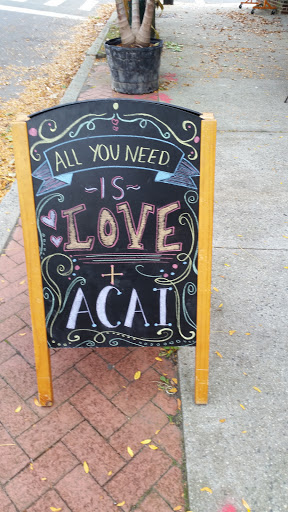 ALL YOU NEED
~IS~
LOVE
+
ACAI